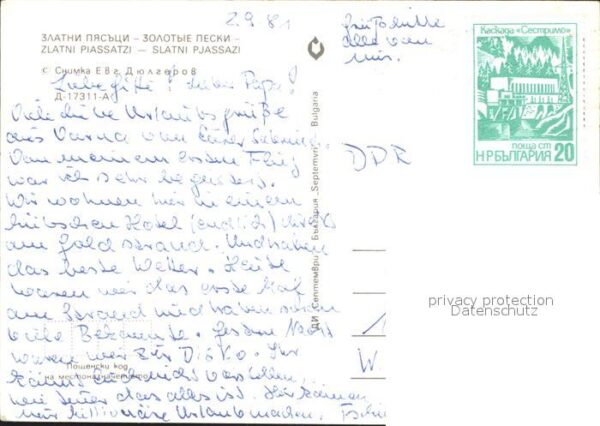 2.9.81
ЗЛАТНИ ПЯСЪЦИ – ЗОЛОТЫЕ ПЕСКИ –
ZLATNI PIASSATZI – SLATNI PJASSAZI
© Снимка Евг. Дюлгеров
Д-17311-А
Liebe ! Lieber Papa!
Viele liebe Urlaubsgrüße
aus Varna von
Von meinem ersten Flug
war ich sehr begeistert.
Wir wohnen hier in einem
hübschen Hotel (endlich) direkt
am Goldstrand. Und haben
das beste Wetter. Heute
waren wir das erste Mal
am Strand und haben schon
viele Bekannte. Gestern Nacht
waren wir zur Disko. Ihr
könnt euch nicht vorstellen,
wie teuer das alles ist. Hier können
nur Millionäre Urlaub machen.
Пощенски код
на местоназначението
ДИ „Септември“ България „Septemvri“ Bulgaria
alle von
mir.
DDR
Каскада „Сестримо“
поща ст
НР БЪЛГАРИЯ 20
W.
privacy protection
Datenschutz